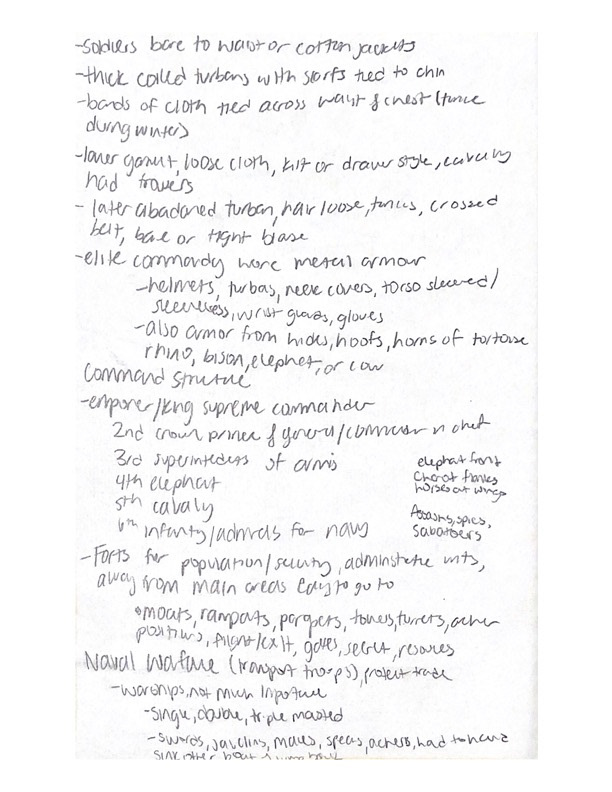 -soldiers bare to waist or cotton jackets
-thick coiled turbans with scarfs tied to chin
-bands of cloth tied across waist & chest (tunic
during winters)
-lower garmut, loose cloth, kilt or drawer style, cavalry
had trowers
- later abadoned turban, hair loose, tunics, crossed
belt, bare or tight blase
-elite commandy wore metal armour
-helmets, turbas, neck covers, torso sleeved/
sleeveless, wrist guards, gloves
-also armor from hides, hoofs, horns of tortoise
rhino, bison, elephet, or cow
Command Structure
-emporer/king supreme commander
2nd crown prince & general/commader n chef
3rd superintedets of armis
4th elephat
5th cavaly
6th infanty/admirals for navy
elephat front
Chariot flanks
horses at wings
Assasins, spies,
Sabatoers
-Forts for population/security, administratie units,
away from main areas easy to go to
•moats, ramparts, parapets, towers, turrets, archer
positions, flight/exit, gates, secret, resources
Naval Warfare (transport troops), protect trade
-warships, not much importance
-single, double, triple masted
-swords, javelins, maces, spears, achers, had to
sink other boat